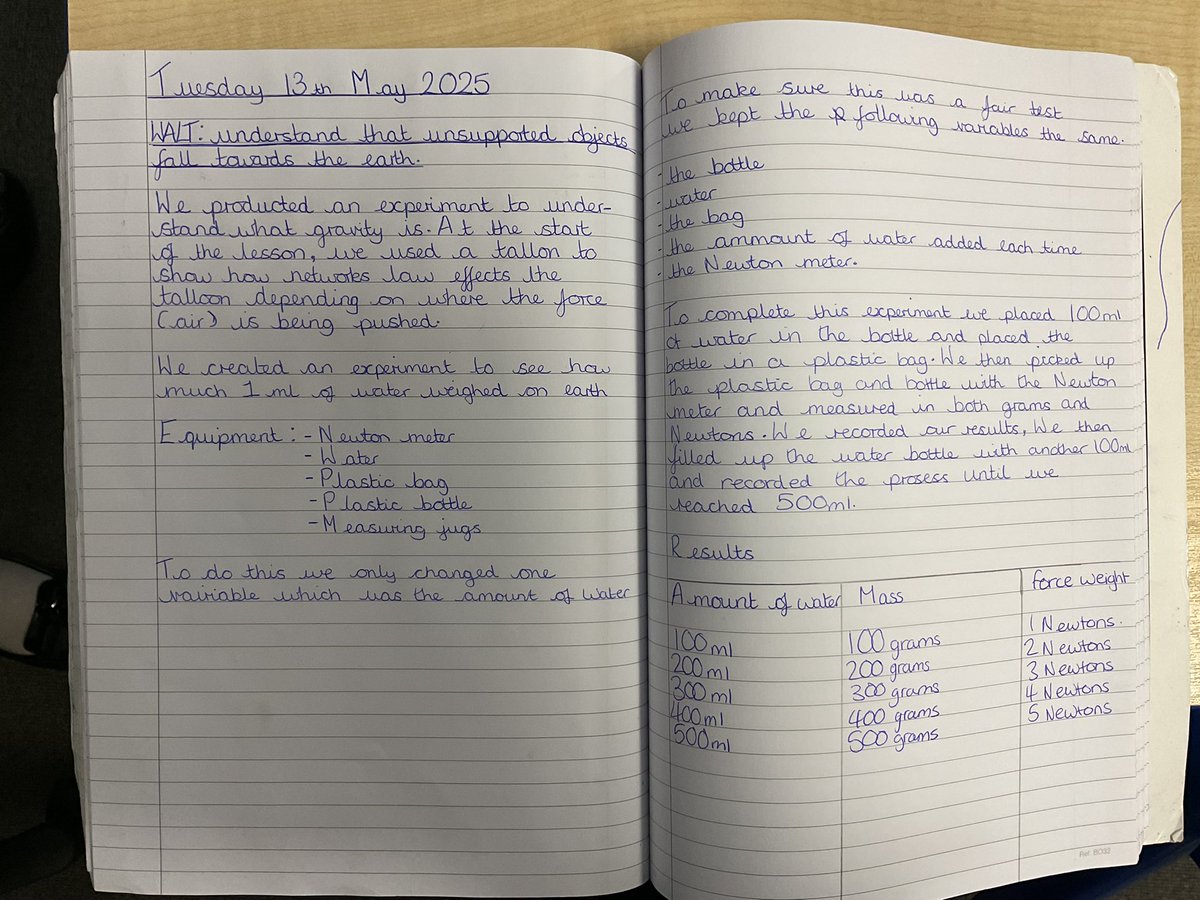 Tuesday 13th May 2025
WALT: understand that unsupported objects
fall towards the earth.
We producted an experiment to under-
stand what gravity is. At the start
of the lesson, we used a talloon to
show how networks law effects the
talloon depending on where the force
(air) is being pushed.
We created an experiment to see how
much 1 ml of water weighed on earth
Equipment: - Neuton meter
- Water
- Plastic bag
- Plastic bottle
- Measuring jugs
To do this we only changed one
vairiable which was the amount of water
To make sure this was a fair test
we kept the following variables the same.
- the bottle
- water
- the bag
- the ammount of water added each time
- the Newton meter.
To complete this experiment we placed 100ml
of water in the bottle and placed the
bottle in a plastic bag. We then picked up
the plastic bag and bottle with the Newton
meter and measured in both grams and
Newtons. We recorded our results, We then
filled up the water bottle with another 100ml
and recorded the prosess until we
reached 500ml.
Results
Amount of water Mass force weight
100ml 100 grams 1 Newtons.
200ml 200 grams 2 Newtons
300ml 300 grams 3 Newtons
400ml 400 grams 4 Newtons
500ml 500 grams 5 Newtons
Ref: BO33